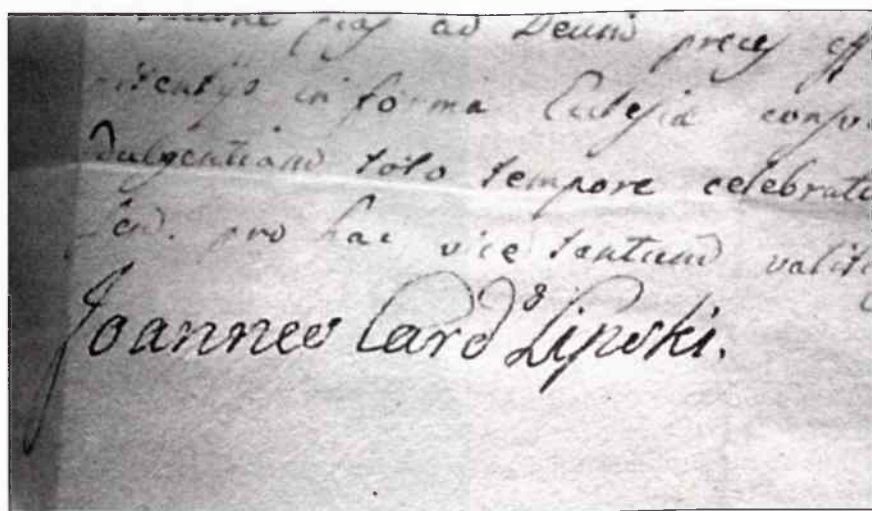 pias ad Deum preces eff
in forma Ecclesiæ consu
dulgentiam toto tempore celebrati
pro hac vice tantum valitu
Joannes Card^s Lipski.